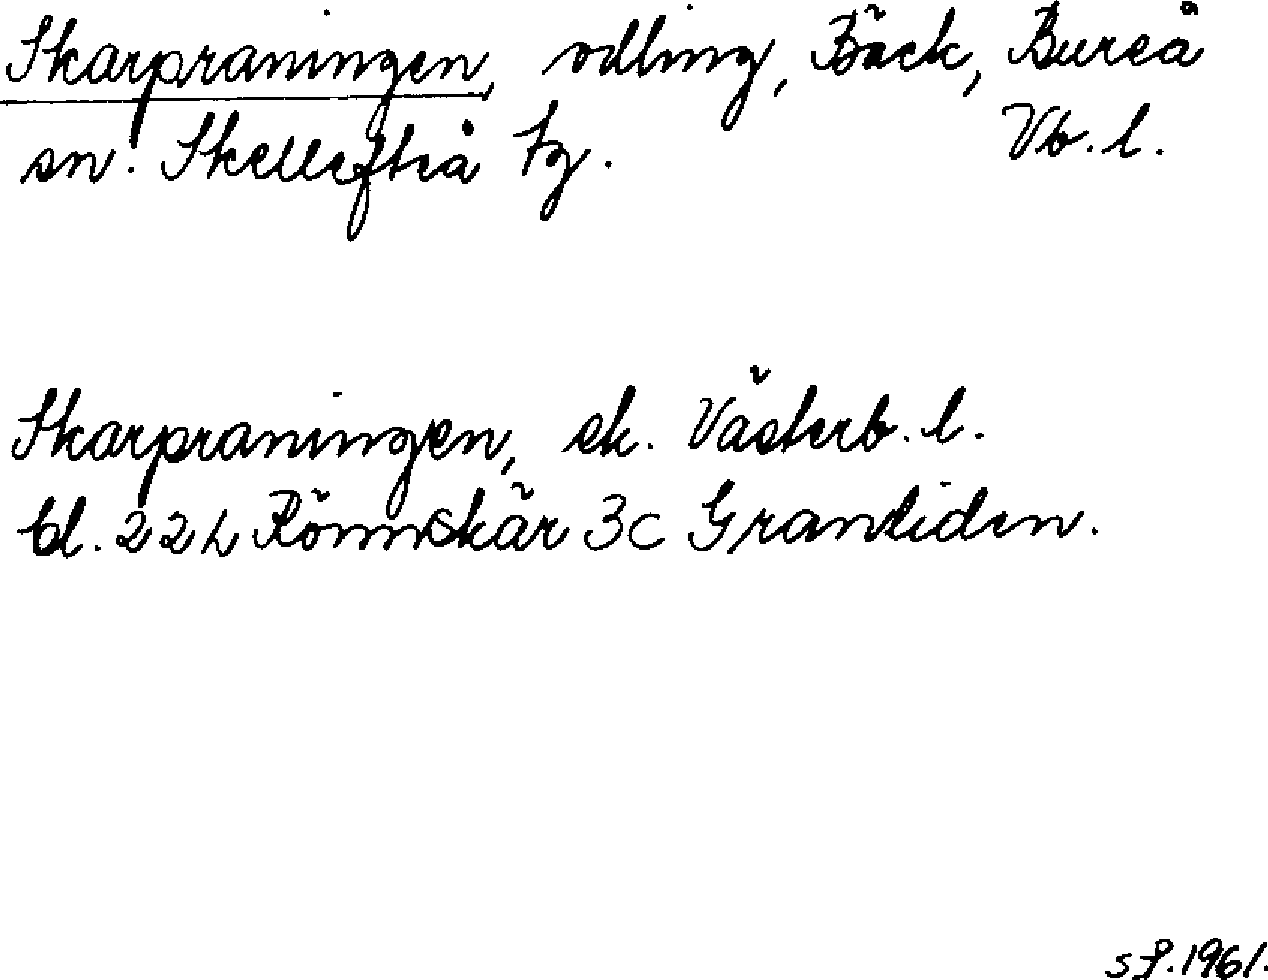 Skarpraningen, odling, Bäck, Bureå
sn. Skellefteå tg. Vb. l.
Skarpraningen, ek. Västerb. l.
bl. 22 L Rönnskär 3c Grantiden.
1961.